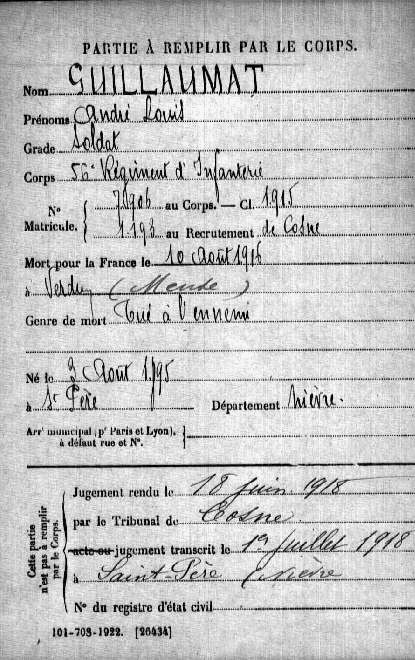 PARTIE À REMPLIR PAR LE CORPS.
Nom GUILLAUMAT
Prénoms André Louis
Grade Soldat
Corps 56e Régiment d'Infanterie
N° 7906 au Corps. — Cl. 1915
Matricule. 1193 au Recrutement de Cosne
Mort pour la France le 10 Août 1916
à Verdun (Meuse)
Genre de mort Tué à l'ennemi
Né le 3 Août 1895
à St Père Département Nièvre.
Arr¹ municipal (pʳ Paris et Lyon),
à défaut rue et N°.
Cette partie
n'est pas à remplir
par le Corps.
Jugement rendu le 18 juin 1918
par le Tribunal de Cosne
acte ou jugement transcrit le 1er juillet 1918
à Saint-Père (Nièvre
N° du registre d'état civil
101-708-1922. [26434]